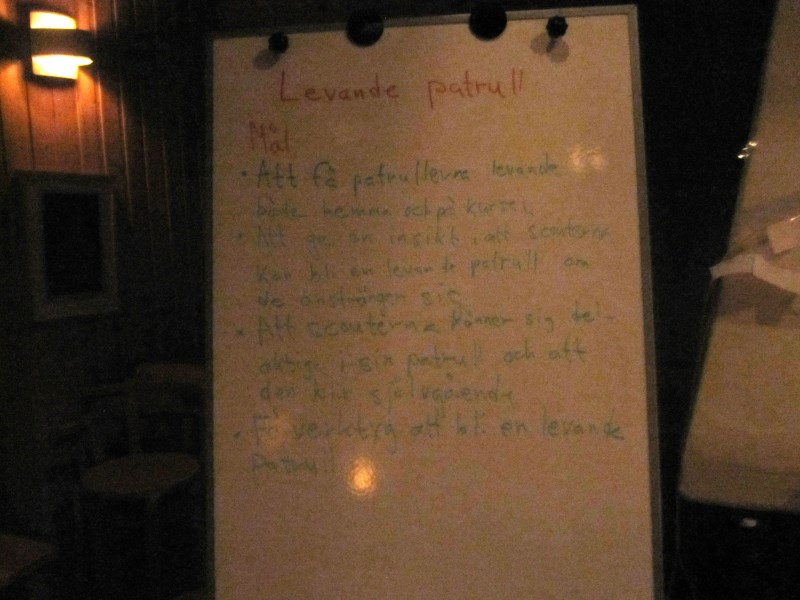 Levande patrull
Mål
• Att få patrullerna levande
både hemma och på kursen
• Att ge en insikt i att scouterna
kan bli en levande patrull om
de anstränger sig
• Att scouterna känner sig del-
aktiga i sin patrull och att
den blir självgående
• Få verktyg att bli en levande
patrull